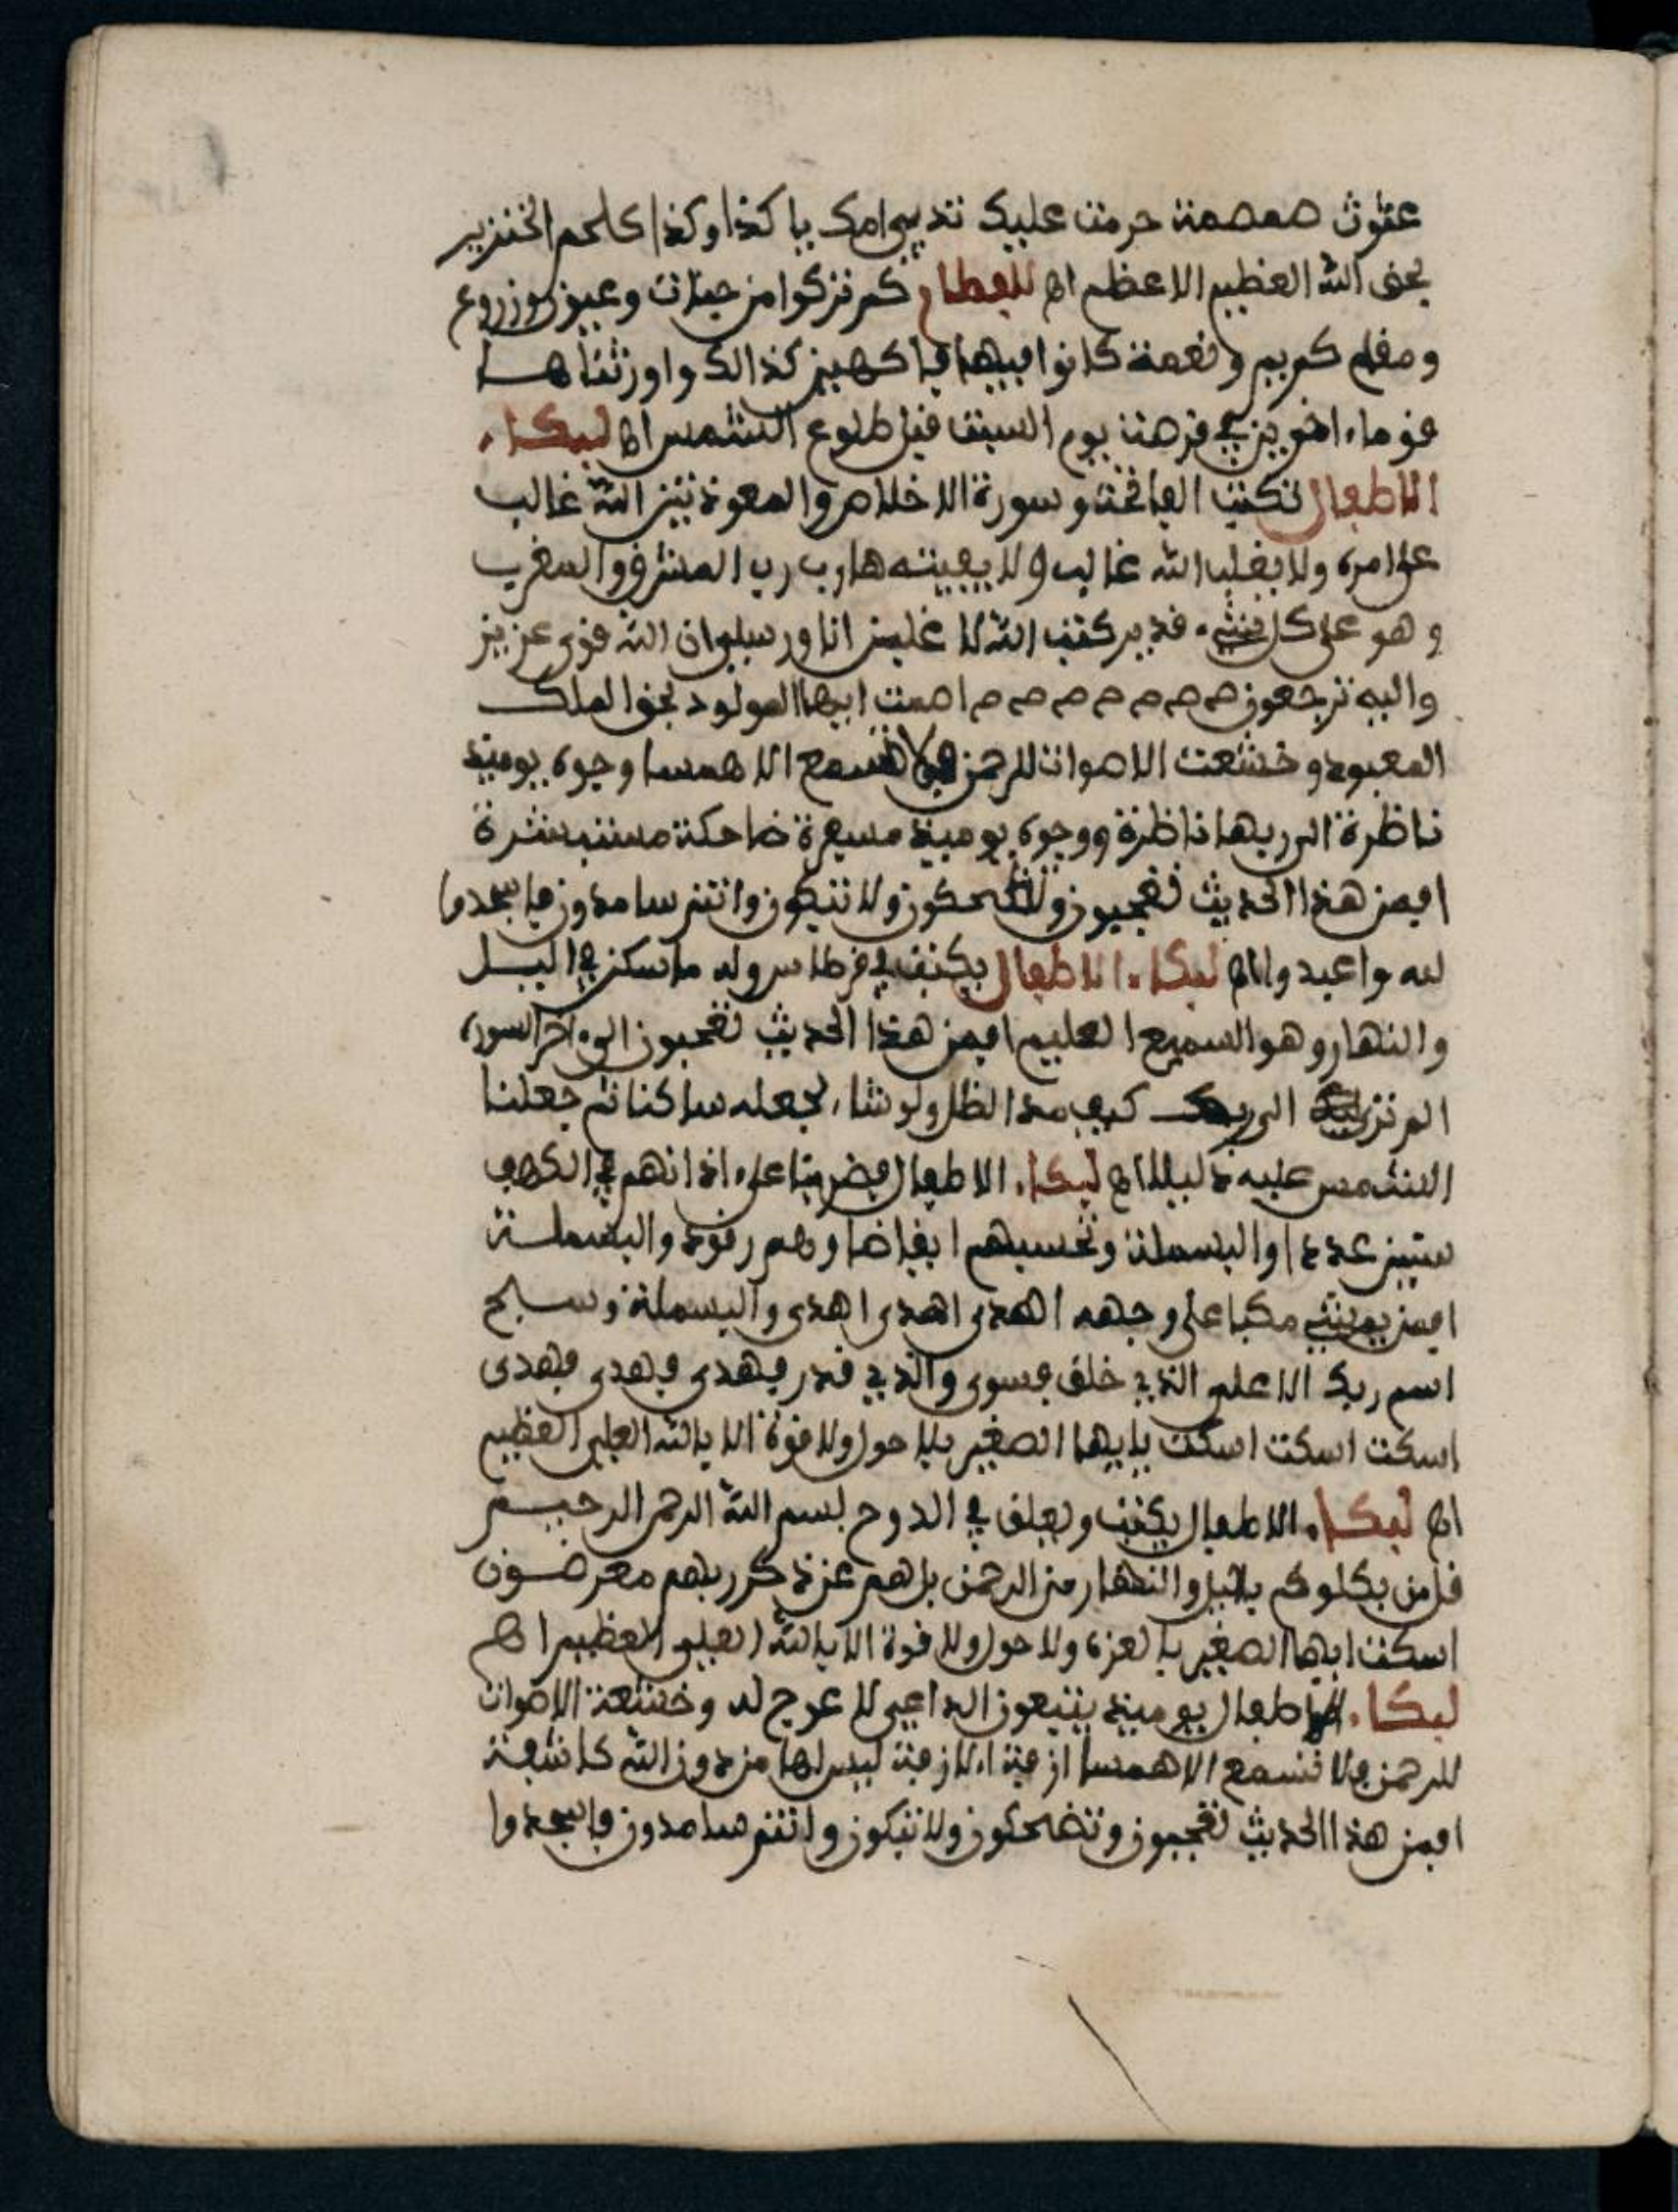 عقوت صمصمة حرمت عليك ثدي امك يا كذا وكذا كلحم الخنزير
بحق الله العظيم الاعظم اه للفطام كم تركوا من جنات وعيون وزروع
ومقام كريم ونعمة كانوا فيها فاكهين كذالك واورثناها
قوماء اخرين في قرصة يوم السبت قبل طلوع الشمس اه لبكاء
الاطفال تكتب الفاتحة وسورة الاخلاص والمعوذتين الله غالب
على امره ولا يغلب الله غالب ولا يفيته هارب رب المشرق والمغرب
وهو على كل شيء قدير كتب الله لا غلبن انا ورسلي ان الله قوي عزيز
واليه ترجعون صه صه صه صه صه صه صه اصمت ايها المولود بحق الملك
المعبود وخشعت الاصوات للرحمن فلا تسمع الا همسا وجوه يوميذ
ناظرة الى ربها ناظرة ووجوه يوميذ مسفرة ضاحكة مستبشرة
افمن هذا الحديث تعجبون وتضحكون ولا تبكون وانتم سامدون فاسجدوا
لله واعبدوا اه لبكاء الاطفال يكتب في قرطاس وله ما سكن في اليل
والنهار وهو السميع العليم افمن هذا الحديث تعجبون الى ءاخر السورة
الم تر الى ربك كيف مد الظل ولو شاء لجعله ساكنا ثم جعلنا
الشمس عليه دليلا اه لبكاء الاطفال فضربنا على ءاذانهم في الكهف
سنين عددا والبسملة وتحسبهم ايقاضا وهم رقود والبسملة
افمن يمشي مكبا على وجهه اهدى اهدى اهدى والبسملة وسبح
اسم ربك الاعلى الذي خلق فسوى والذي قدر فهدى فهدى فهدى
اسكت اسكت اسكت يايها الصغير بلا حول ولا قوة الا بالله العلي العظيم
اه لبكاء الاطفال يكتب ويعلق في الدوح بسم الله الرحمن الرحيم
قل من يكلوكم باليل والنهار من الرحمن بل هم عن ذكر ربهم معرضون
اسكت ايها الصغير بالعزة ولا حول ولا قوة الا بالله العلي العظيم اه
لبكاء الاطفال يوميذ يتبعون الداعي لا عوج له وخشعة الاصوات
للرحمن فلا تسمع الا همسا ازفة الازفة ليس لها من دون الله كاشفة
افمن هذا الحديث تعجبون وتضحكون ولا تبكون وانتم سامدون فاسجدوا